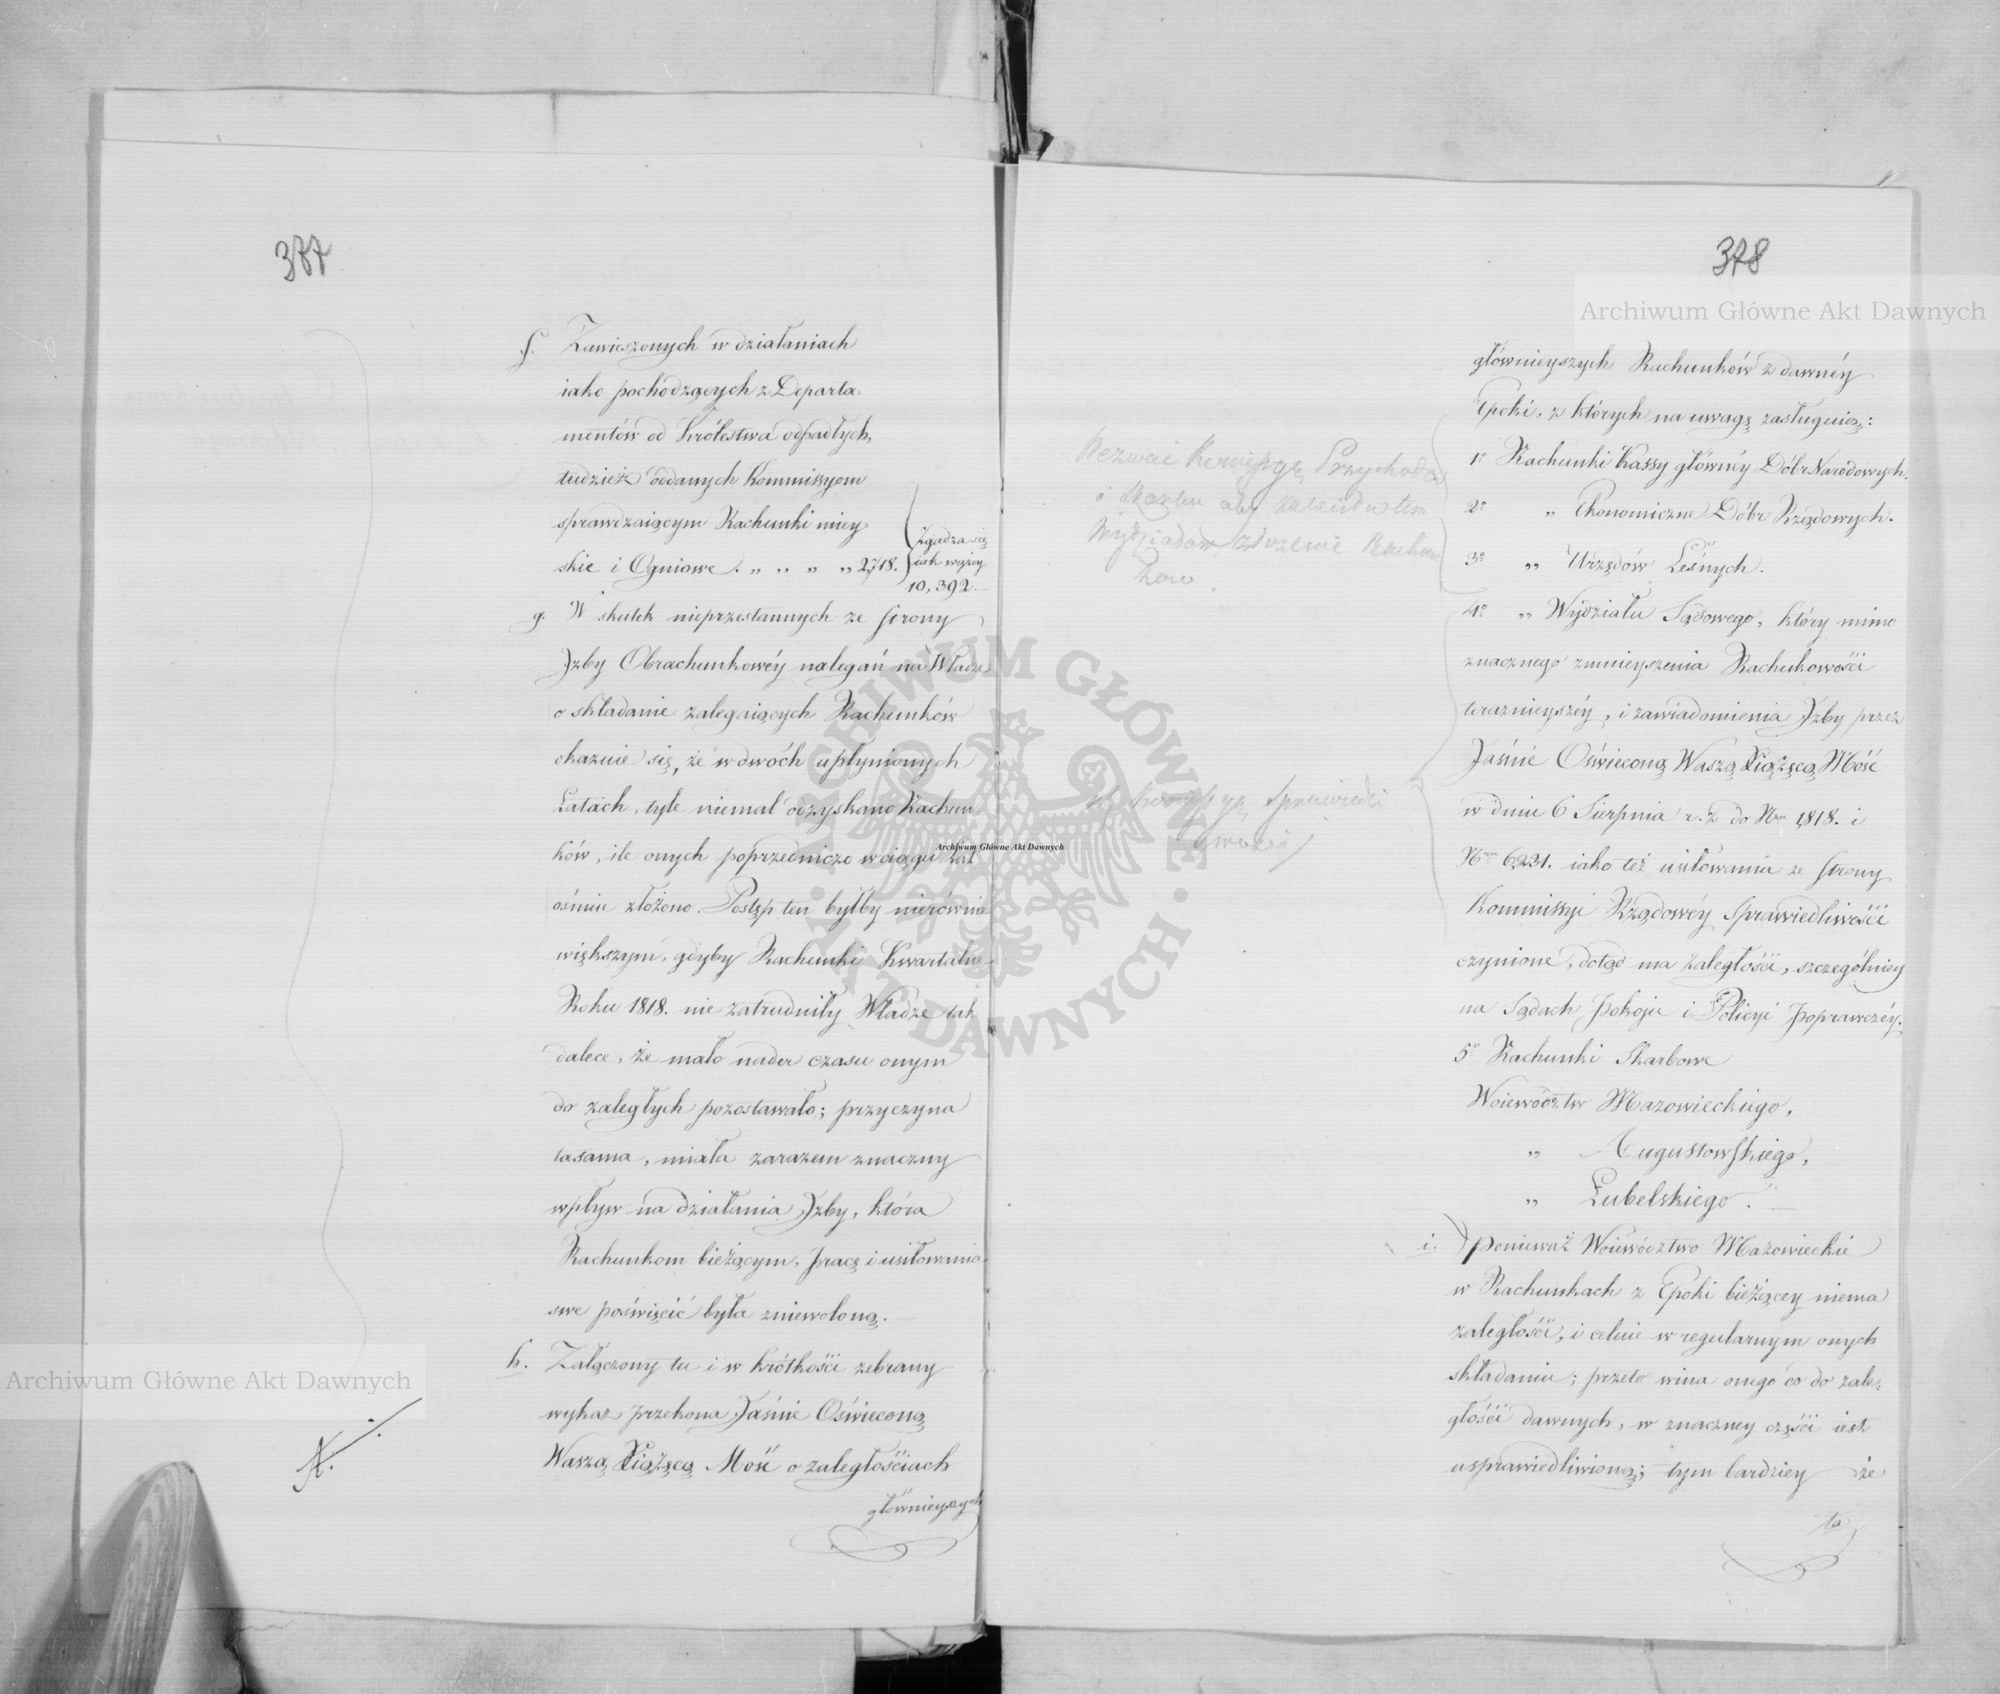 377
f. Zawieszonych w działaniach
iako pochodzących z Departa-
mentów od Królestwa odpadłych,
tudzież oddanych Kommissyom
sprawdzaiącym Rachunki miey-
skie i Ogniowe. „ „ „ „ 2,718.
Zgadza się
iak wyżey
10,392.
g. W skutek nieprzestannych ze strony
Jzby Obrachunkowéy nalegań na Władze
o składanie zalegaiących Rachunków
okazuie się, że w dwóch upłynionych
Latach, tyle niemal odzyskano Rachun
ków, ile onych poprzedniczo w ciągu lat
ośmiu złożono. Postęp ten byłby nierównie
większym, gdyby Rachunki Kwartalne
Roku 1818. nie zatrudniły Władze tak
dalece, że mało nader czasu onym
do zaległych pozostawało; przyczyna
tasama, miała zarazem znaczny
wpływ na działania Jzby, która
Rachunkom bieżącym, pracę i usiłowania
swe poświęcić była zniewoloną.
h. Załączony tu i w krótkości zebrany
wykaz przekona Jaśnie Oświeconą
Waszą Xiążęcą Mość o zaległościach
głównieyszych
378
głównieyszych Rachunków z dawnéy
Epoki, z których na uwagę zasługuią:
1º Rachunki Kassy główney Dóbr Narodowych.
2º „ Ekonomiczne Dóbr Rządowych.
3º „ Urzędów Leśnych.
4º „ Wydziału Sądowego, który mimo
znacznego zmnieyszenia Rachukowości
teraznieyszéy, i zawiadomienia Jzby przez
Jaśnie Oświeconą Waszą Xiążęcą Mość
w dniu 6 Sierpnia r. z do Nru 1818. i
Nru 6231. iako też usiłowania ze strony
Kommissyi Rządowéy Sprawiedliwości
czynione, dotąd ma zaległości, szczególniey
na Sądach Pokoju i Policyi Poprawczéy.
5º Rachunki Skarbowe
Woiewództw Mazowieckiego,
„ Augustowskiego,
„ Lubelskiego.
i. Ponieważ Woiewództwo Mazowieckie
w Rachunkach z Epoki bieżącey niema
zaległości, i celuie w regularnym onych
składaniu; przeto wina onego co do zale-
głości dawnych, w znaczney części iest
usprawiedliwioną; tym bardziey że
ta
Wezwać Kommissyę Przychodów
i Skarbu aby
Archiwum Główne Akt Dawnych
Archiwum Główne Akt Dawnych
Archiwum Główne Akt Dawnych
ARCHIWUM GŁÓWNE · AKT DAWNYCH ·